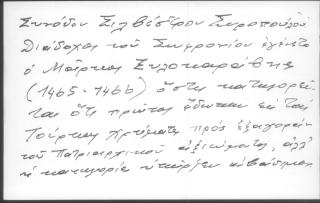 Συνόδου Σιλβέστρου Συροπούλου
Διάδοχος τοῦ Σωφρονίου ἐγένετο
ὁ Μᾶρκος Ξυλοκαράβης
(1465-1466) ὅστις κατηγορεῖ-
ται ὅτι πρῶτος ἔδωκεν εἰς τοὺς
Τούρκους χρήματα πρὸς ἐξαγορὰν
τοῦ Πατριαρχικοῦ ἀξιώματος, ἀλλ'
ἡ κατηγορία